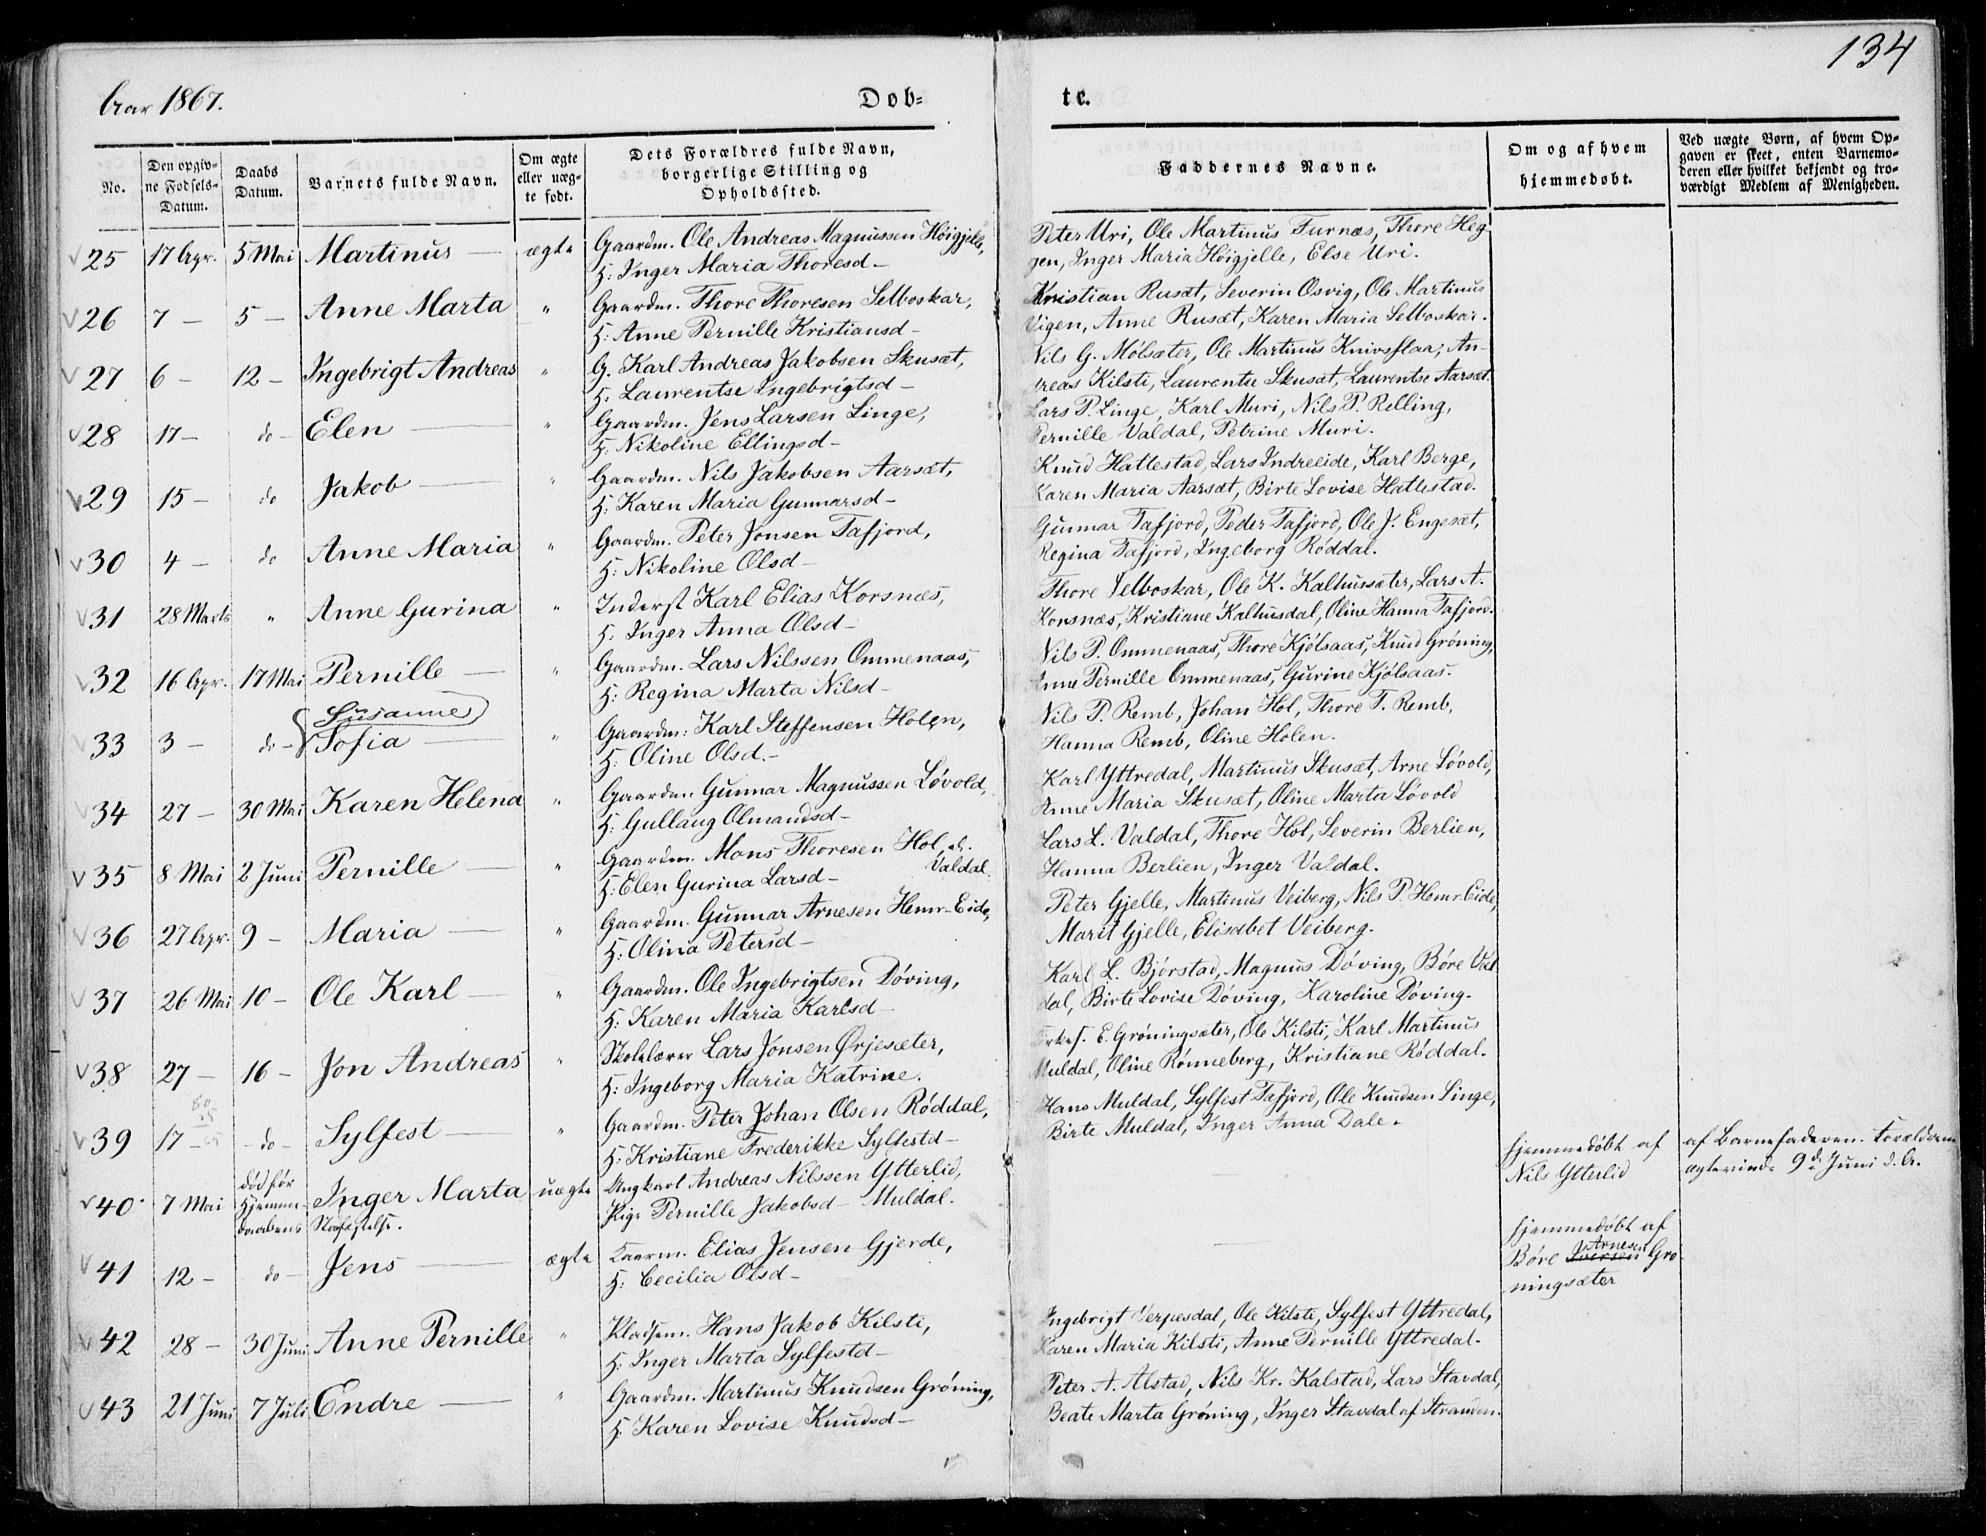 134
Aar 1867.
Dob-
te.
No.
Den opgiv-
ne Fødsels-
Datum.
Daabs
Datum.
Barnets fulde Navn.
Om ægte
eller uæg-
te født.
Dets Forældres fulde Navn,
borgerlige Stilling og
Opholdssted.
Faddernes Navne.
Om og af hvem
hjemmedøbt.
Ved uægte Børn, af hvem Op-
gaven er skeet, enten Barnemo-
deren eller hvilket bekjendt og tro-
værdigt Medlem af Menigheden.
25 17 Apr. 5 Mai Martinus — ægte Gaardm. Ole Andreas Magnussen Høigjelle, Peter Uri, Ole Martinus Furnæs, Thore Heg-
H: Inger Maria Thoresd — gen, Inger Maria Høigjelle, Else Uri.
26 7 — 5 — Anne Marta " Gaardm. Thore Thoresen Selboskar, Kristian Rusæt, Severin Osvig, Ole Martinus
H: Anne Pernille Kristiansd — Vigen, Anne Rusæt, Karen Maria Selboskar.
27 6 — 12 — Ingebrigt Andreas " G. Karl Andreas Jakobsen Skusæt, Nils G. Mølsæter, Ole Martinus Knivsflaa, An-
H: Laurentse Ingebrigtsd — dreas Kilsti, Laurentse Skusæt, Laurentse Aarsæt.
28 17 — do — Elen — " Gaardm. Jens Larsen Linge, Lars P. Linge, Karl Muri, Nils P. Relling,
H: Nikoline Ellingsd — Pernille Valdal, Petrine Muri.
29 15 — do Jakob — " Gaardm. Nils Jakobsen Aarsæt, Knud Hattestad, Lars Indreeide, Karl Berge,
H: Karen Maria Gunnarsd — Karen Maria Aarsæt, Birte Lovise Hattestad.
30 4 — do Anne Maria " Gaardm. Peter Jonsen Tafjord, Gunnar Tafjord, Peder Tafjord, Ole J. Engesæt,
H: Nikoline Olsd — Regina Tafjord, Ingeborg Røddal.
31 28 Marts " Anne Gurina " Inderst Karl Elias Korsnæs, Thore Selboskar, Ole K. Kalhussæter, Lars A.
H: Inger Anna Olsd — Korsnæs, Kristiane Kalhusdal, Oline Hanna Tafjord.
32 16 Apr. 17 Mai Pernille — " Gaardm. Lars Nilssen Ommenaas, Nils P. Ommenaas, Thore Kjølsaas, Knud Grøning,
H: Regina Marta Nilsd — Anne Pernille Ommenaas, Gurine Kjølsaas.
Susanne
33 3 — do — Sofia — " Gaardm: Karl Steffensen Holen, Nils P. Remb, Johan Hol, Thore T. Remb,
H: Oline Olsd. — Hanna Remb, Oline Holen.
34 27 — 30 Mai Karen Helena " Gaardm. Gunnar Magnussen Løvold, Karl Yttredal, Martinus Skusæt, Arne Løvold,
H: Gullaug Olmandsd — Anne Maria Skusæt, Oline Marta Løvold
35 8 Mai 2 Juni Pernille — " Gaardm. Mons Thoresen Hol, Lars L. Valdal, Thore Hol, Severin Berlien,
H: Elen Gurina Larsd — Valdal. Hanna Berlien, Inger Valdal.
36 27 Apr. 9 — Maria — " Gaardm. Gunnar Arnesen Hemr-Eide, Peter Gjelle, Martinus Veiberg, Nils P. Hemr. Eide,
H: Olina Petersd — Marit Gjelle, Elisabet Veiberg.
37 26 Mai 10 — Ole Karl — " Gaardm. Ole Ingebrigtsen Døving, Karl L. Bjørstad, Magnus Døving, Børe Val-
H: Karen Maria Karlsd dal, Birte Lovise Døving, Karoline Døving.
38 27 — 16 — Jon Andreas " Skolelærer Lars Jonsen Ørjesæter, Kirkes. E. Grøningsæter, Ole Kilsti, Karl Martinus
H: Ingeborg Maria Katrine. Muldal, Oline Rønneberg, Kristiane Røddal.
39 17 — do — Sylfest — " Gaardm. Peter Johan Olsen Røddal, Hans Muldal, Sylfest Tafjord, Ole Knudsen Linge,
H: Kristiane Frederikke Sylfestd — Birte Muldal, Inger Anna Dale.
40 7 Mai død før Hjemme-daabens Stadfæstelse. Inger Marta uægte Ungkarl Andreas Nilssen Ytterlid, — Hjemmedøbt af af Barnefaderen. Forældrene
Pige Pernille Jakobsd — Muldal. Nils Ytterlid ægteviede 9d Juni d. A.
41 12 — do — Jens — ægte Gaardm. Elias Jensen Gjerde, — Hjemmedøbt af
H: Cecilia Olsd — Børe Iversen Arnesen Grø-
ningsæter
42 28 — 30 Juni Anne Pernille " Pladsem. Hans Jakob Kilsti, Ingebrigt Verpesdal, Ole Kilsti, Sylfest Yttredal,
H: Inger Marta Sylfestd — Karen Maria Kilsti, Anne Pernille Yttredal.
43 21 Juni 7 Juli Endre — " Gaardm. Martinus Knudsen Grøning, Peter A. Alstad, Nils Kr. Kalstad, Lars Stavdal,
H: Karen Lovise Knudsd — Beate Marta Grøning, Inger Stavdal af Stranden.